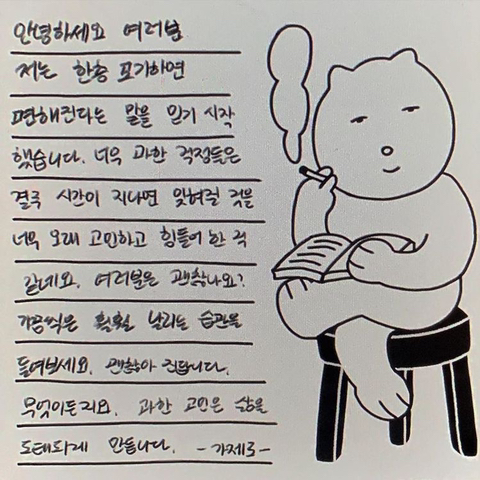 안녕하세요 여러분
저는 포기하면
편해진다는 말을 믿기 시작
했습니다. 너무 과한 걱정들은
결국 시간이 지나면 잊혀질 것을
너무 오래 고민하고 힘들어 한 것
같네요. 여러분은 괜찮나요?
가끔씩은 날리는 습관을
들여보세요. 괜찮아 집니다.
무엇이든지요. 과한 고민은 삶을
도태되게 만듭니다. -가제로-